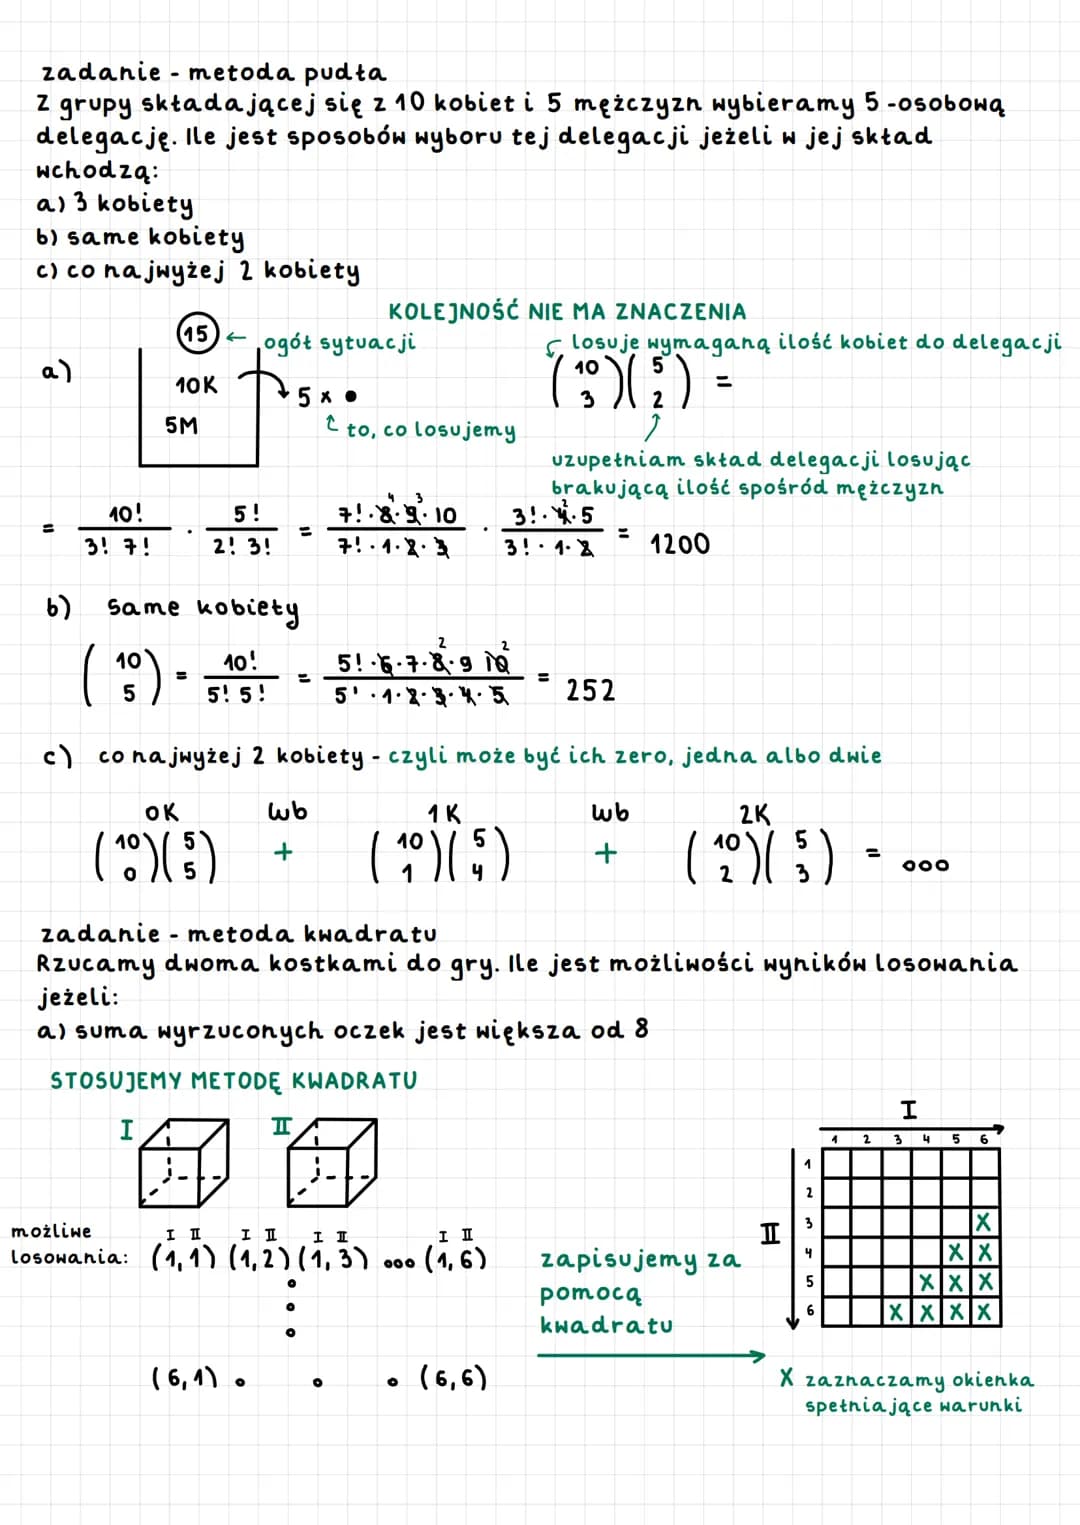 zadanie - metoda pudła
Z grupy składającej się z 10 kobiet i 5 mężczyzn wybieramy 5-osobową
delegację. Ile jest sposobów wyboru tej delegacji jeżeli w jej skład
wchodzą:
a) 3 kobiety
b) same kobiety
c) co najwyżej 2 kobiety
KOLEJNOŚĆ NIE MA ZNACZENIA
a)
15 ← ogół sytuacji
10K
5M
5 x •
to, co losujemy
losuje wymaganą ilość kobiet do delegacji
(10 3)(5 2) =
uzupełniam skład delegacji losując
brakującą ilość spośród mężczyzn
= 10!/3! 7! · 5!/2! 3! = 7!·8·9·10/7!·1·2·3 · 3!·4·5/3!·1·2 = 1200
4 3 2
b) same kobiety
(10 5) = 10!/5! 5! = 5!·6·7·8·9 10/5!·1·2·3·4·5 = 252
2 2
c) co najwyżej 2 kobiety - czyli może być ich zero, jedna albo dwie
0K lub 1K lub 2K
(10 0)(5 5) + (10 1)(5 4) + (10 2)(5 3) = ooo
zadanie - metoda kwadratu
Rzucamy dwoma kostkami do gry. Ile jest możliwości wyników losowania
jeżeli:
a) suma wyrzuconych oczek jest większa od 8
STOSUJEMY METODĘ KWADRATU
I II
możliwe
losowania:
I II I II I II I II
(1,1) (1,2) (1,3) ooo (1,6)
(6,1) • • • (6,6)
zapisujemy za
pomocą
kwadratu
I
1 2 3 4 5 6
II
1
2
3 X
4 X X
5 X X X
6 X X X X
X zaznaczamy okienka
spełniające warunki